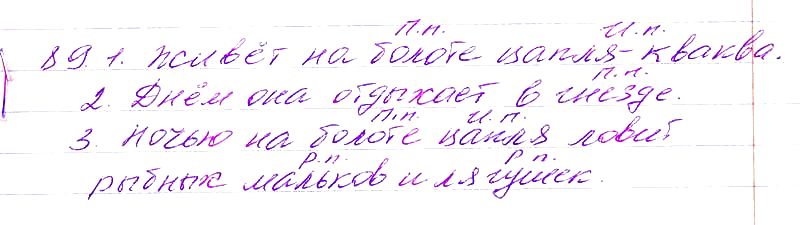 П.п. И.п.
89. 1. Живёт на болоте цапля-кваква.
П.п.
2. Днём она отдыхает в гнезде.
П.п. И.п.
3. Ночью на болоте цапля ловит
Р.п. Р.п.
рыбных мальков и лягушек.